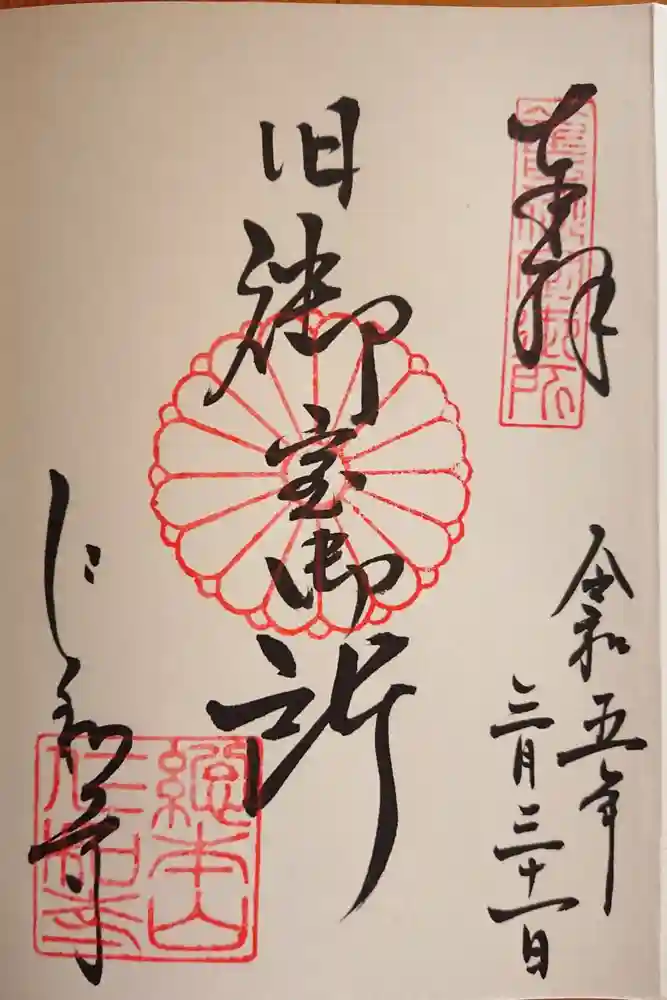 奉拝
令和五年
三月三十一日
旧御室御所
仁和寺
總本山
仁和寺